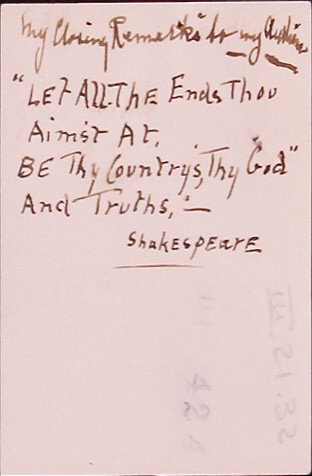 My Closing Remarks to my
"LET ALL THE Ends Thou
Aimst At,
BE Thy Country's, Thy God"
And Truths,
Shakespeare